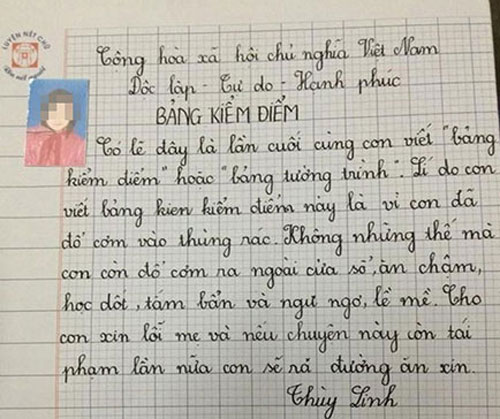 LUYỆN NÉT CHỮ
Rèn nết người
Cộng hoà xã hội chủ nghĩa Việt Nam
Độc lập - Tự do - Hạnh phúc
BẢNG KIỂM ĐIỂM
Có lẽ đây là lần cuối cùng con viết "bảng
kiểm điểm" hoặc "bảng tường trình". Lí do con
viết bảng kien kiểm điểm này là vì con đã
đổ cơm vào thùng rác. Không những thế mà
con còn đổ cơm ra ngoài cửa sổ, ăn chậm,
học dốt, tắm bẩn và ngu ngơ, lề mề. Cho
con xin lỗi mẹ và nếu chuyện này còn tái
phạm lần nữa con sẽ ra đường ăn xin.
Thùy Linh